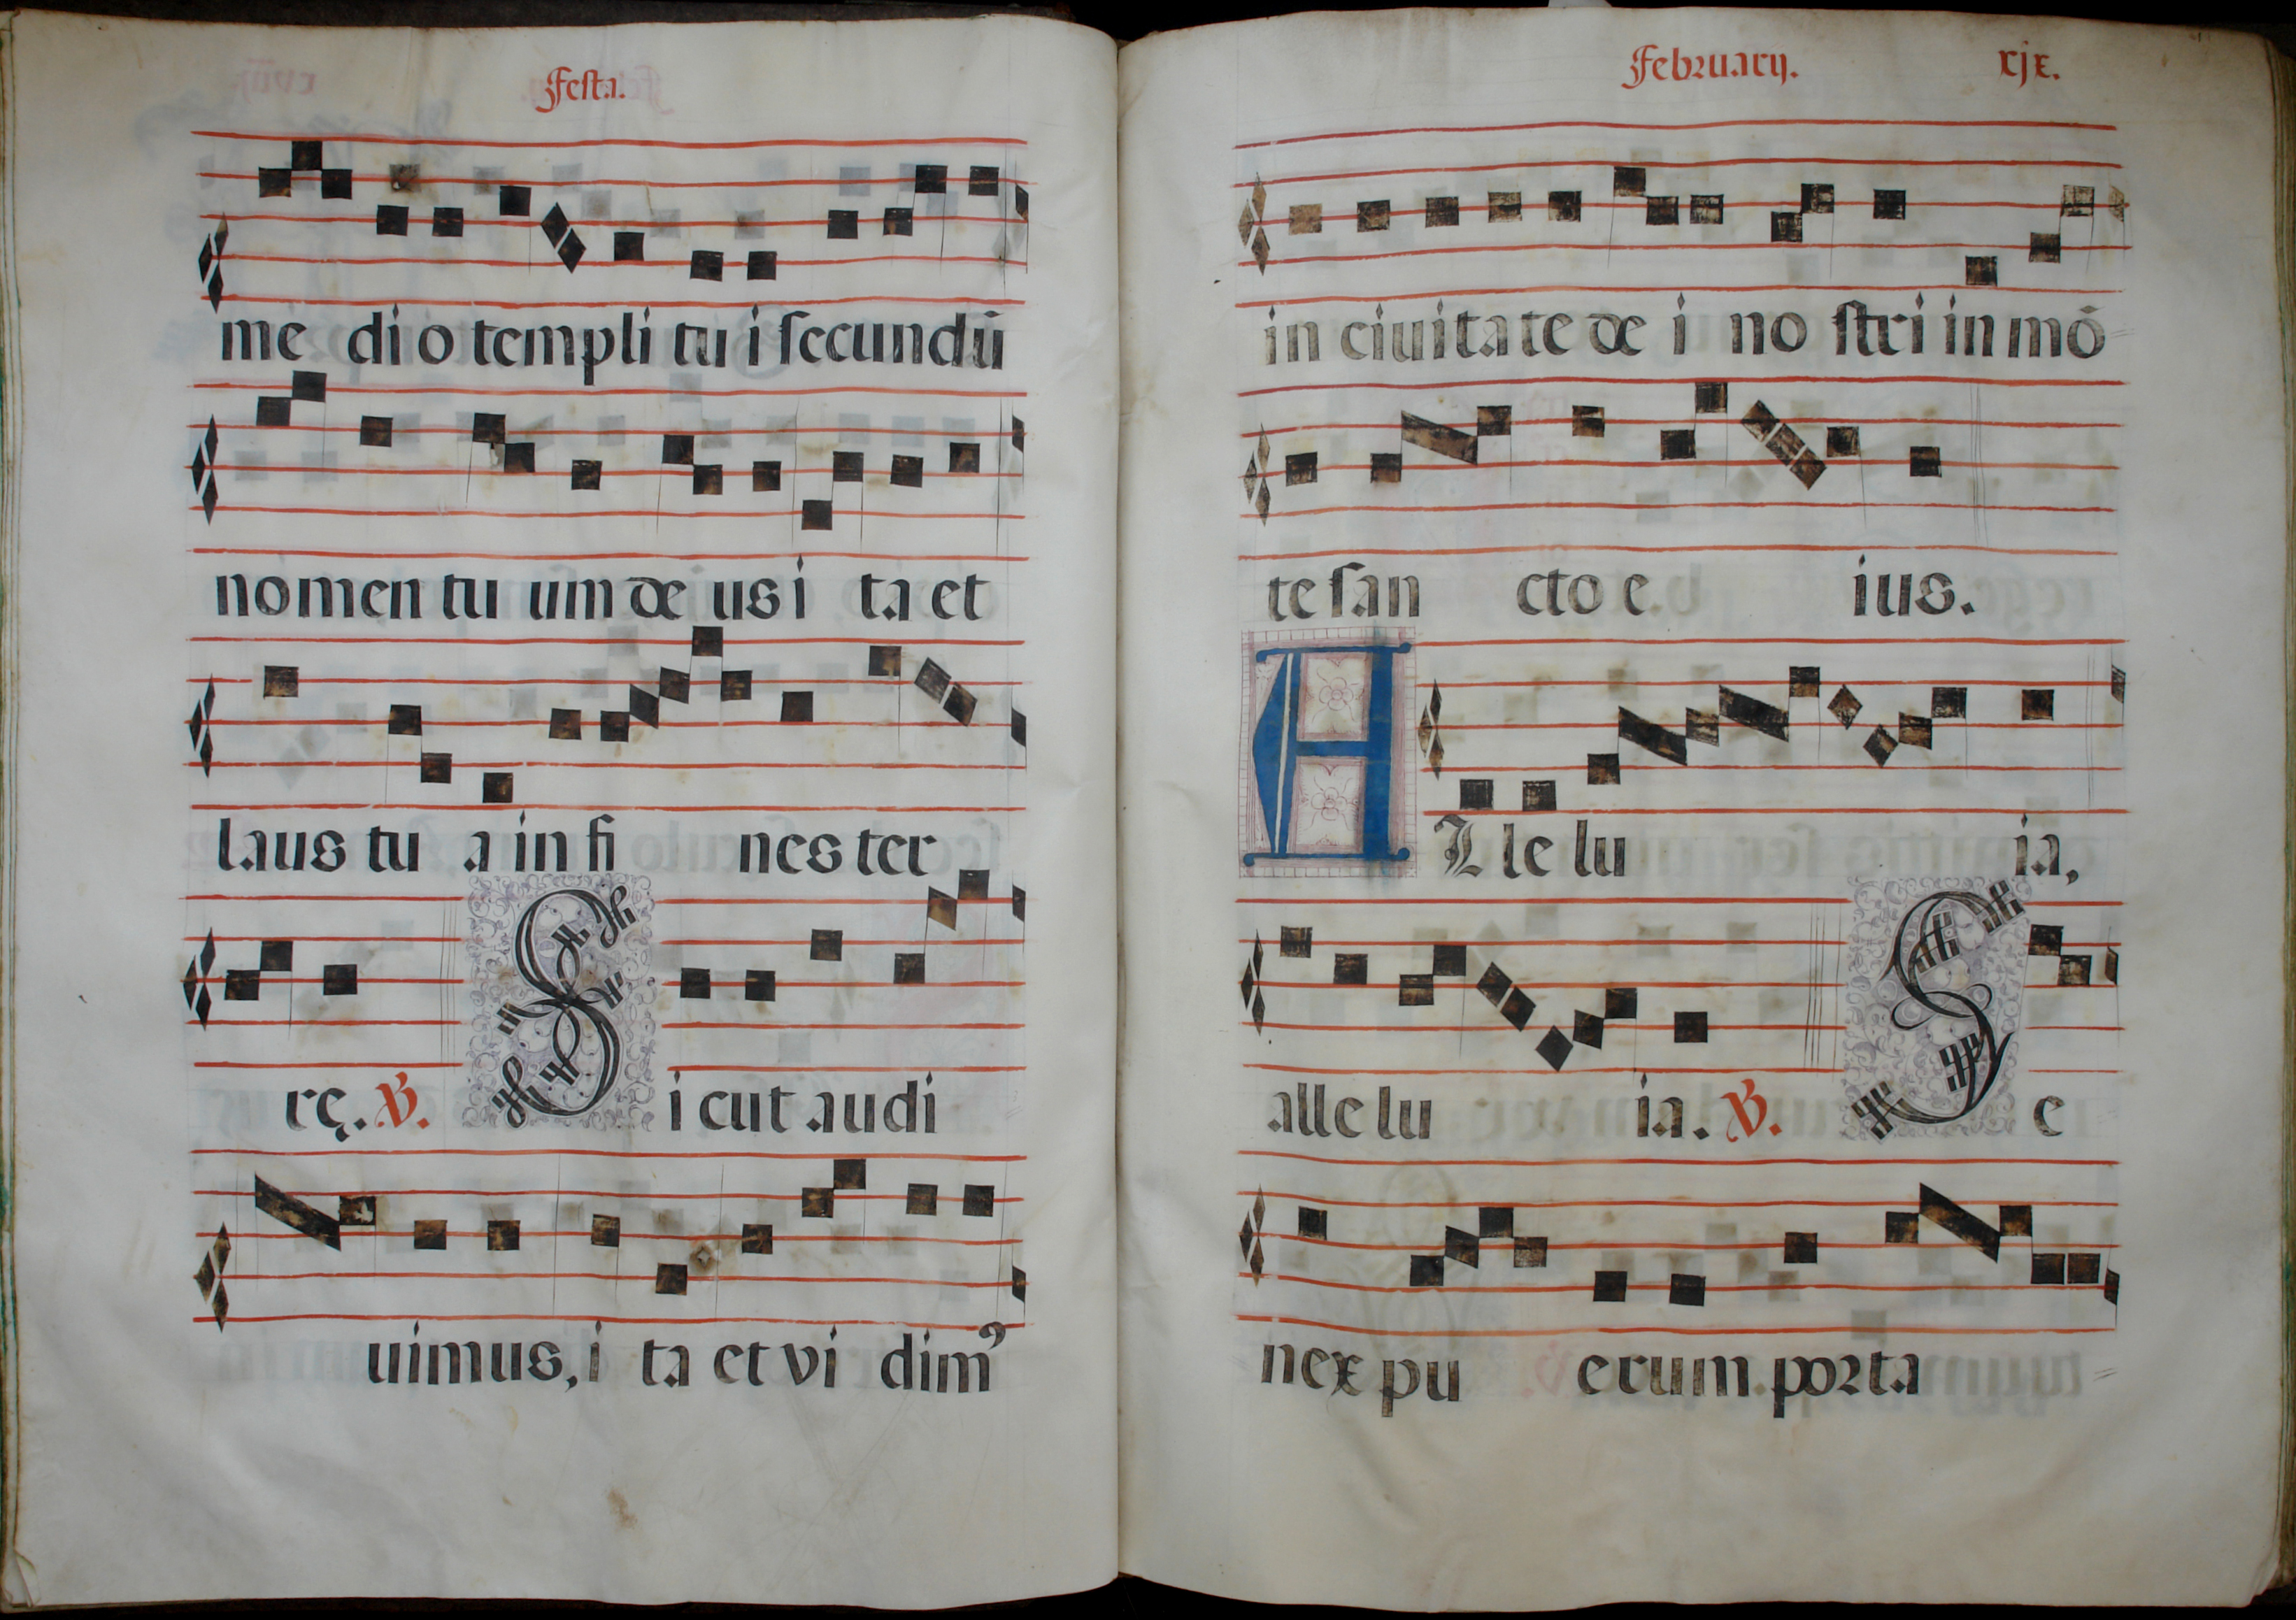 Festa.
me di o templi tu i secundũ
nomen tu um de us i ta et
laus tu a in fi nes ter
rę. ℣. S i cut audi
uimus, i ta et vi dimꝰ
February. xjx.
in ciuitate de i no stri in mõ
te san cto e ius.
A L le lu ia,
alle lu ia. ℣. S e
nex pu erum porta